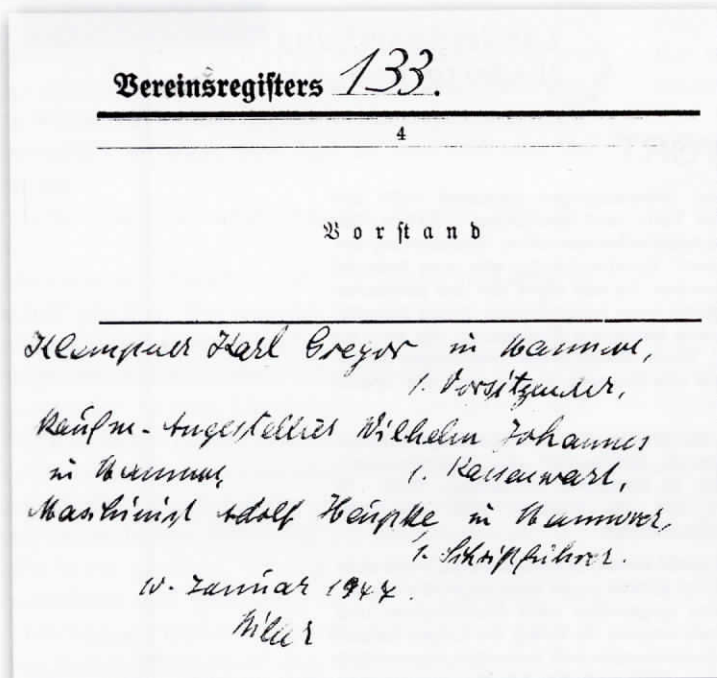 Vereinsregisters 133.
4
Vorstand
Klempner Karl Gregor in Hannover,
1. Vorsitzender,
Kaufm. Angestellter Wilhelm Johannes
in Hannover, 1. Kassenwart,
Maschinist Adolf Heupke in Hannover,
1. Schriftführer.
10. Januar 1947.